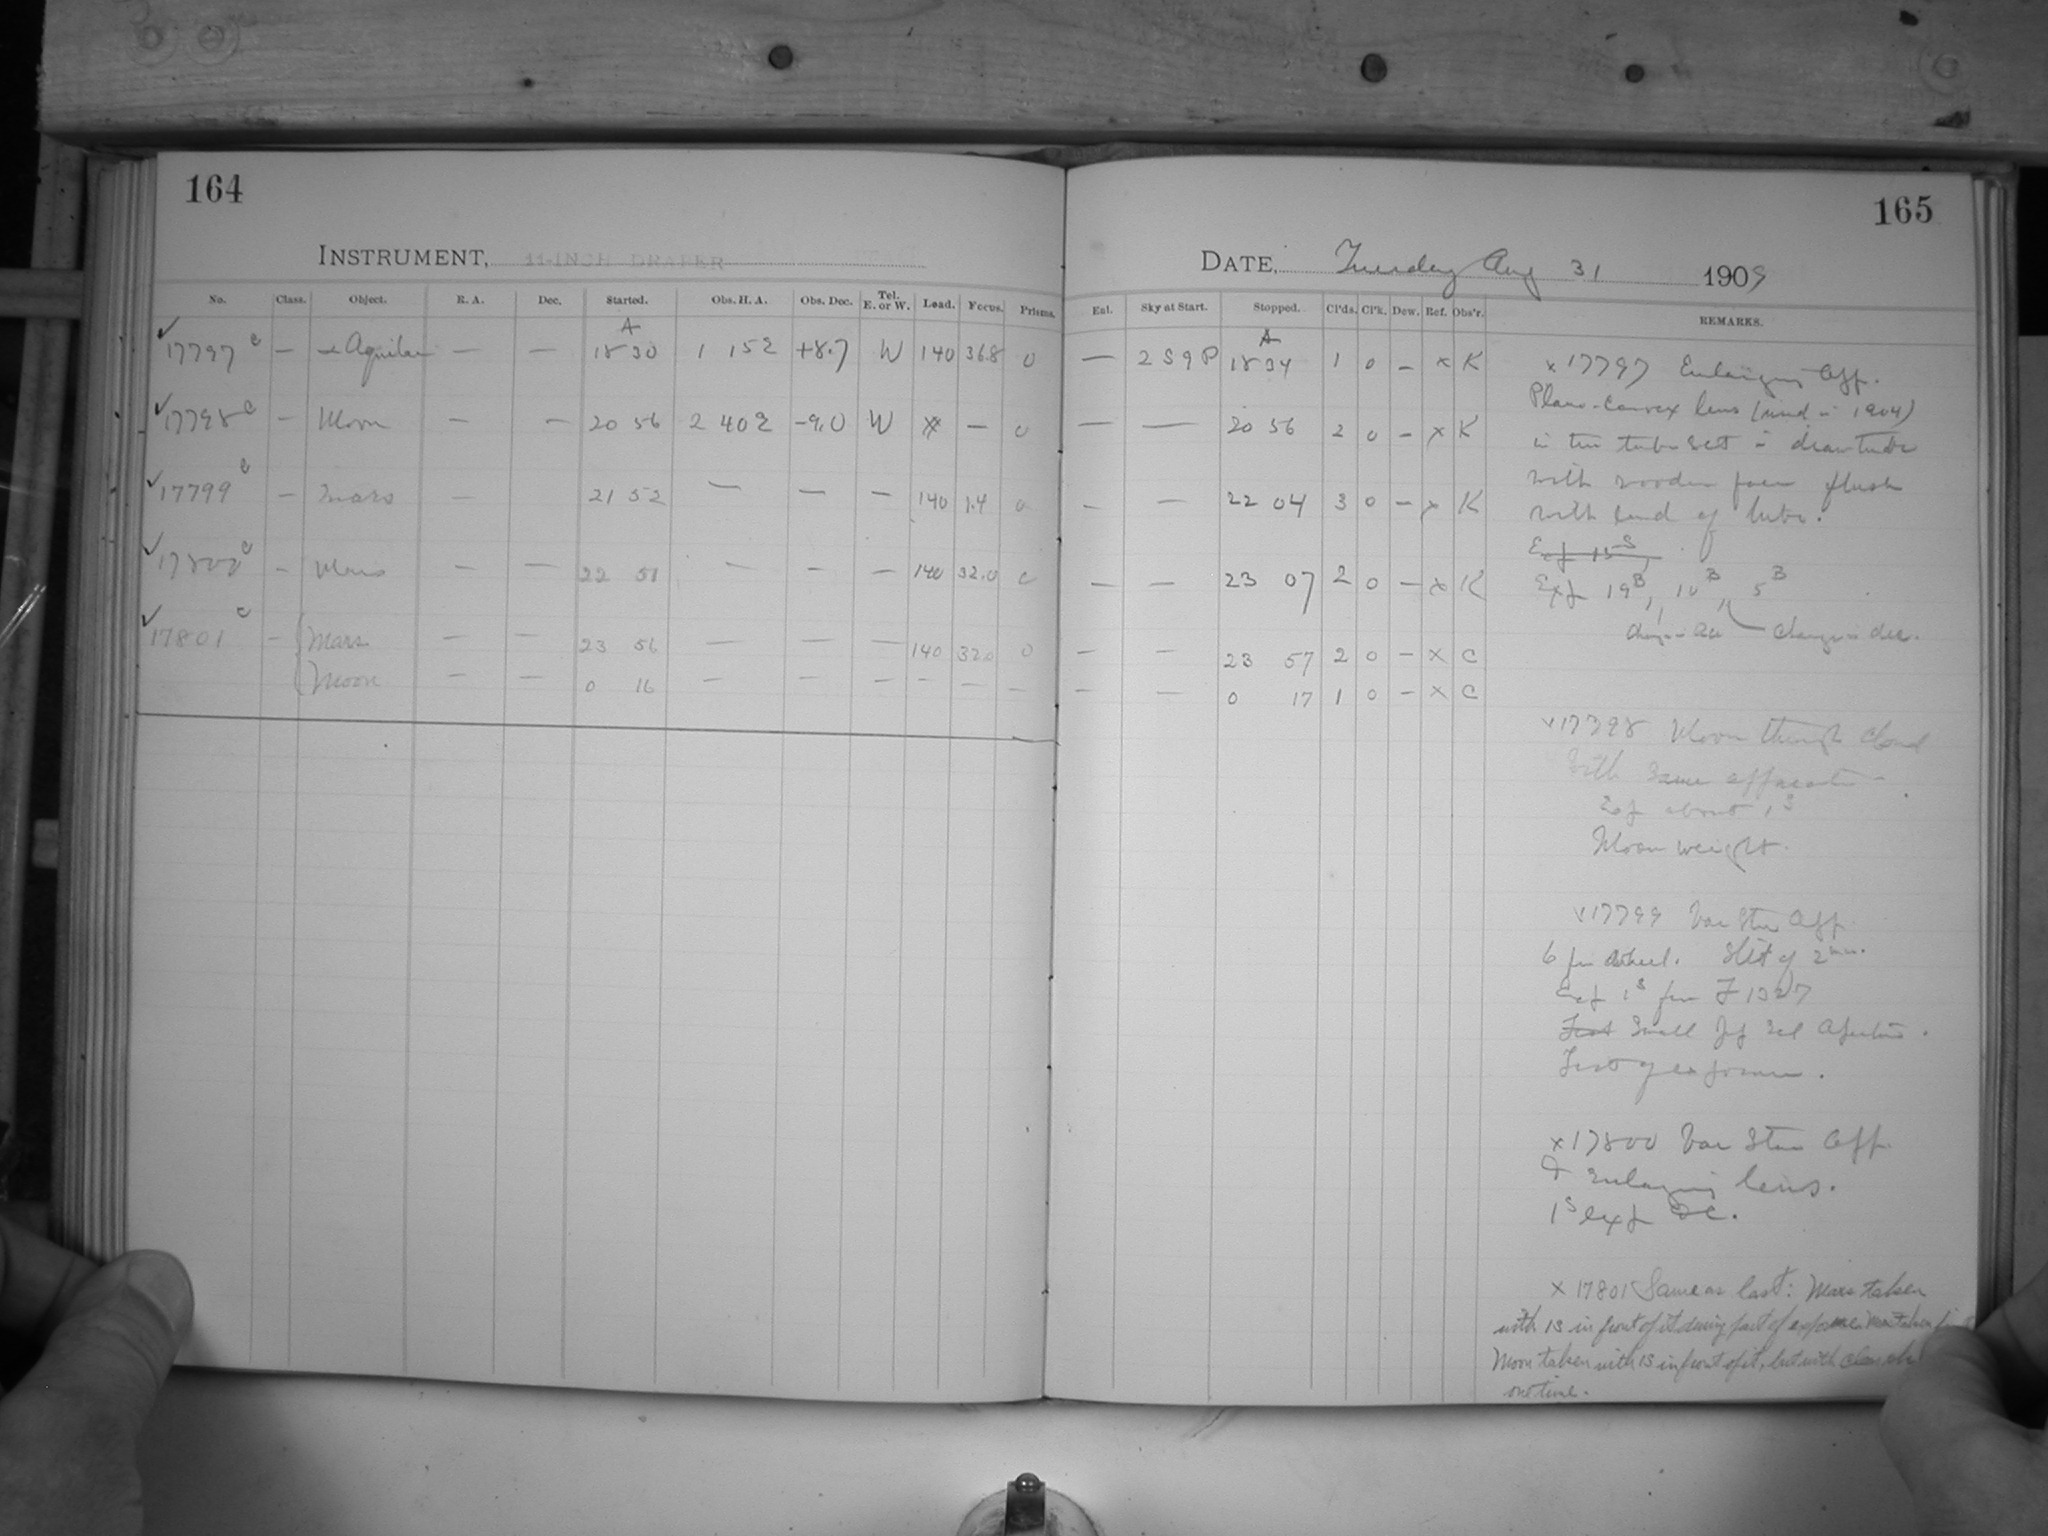 164
INSTRUMENT, 11-INCH DRAPER
No. Class. Object. R. A. Dec. Started. Obs. H. A. Obs. Dec. Tel. E. or W. Load. Focus. Prisms.
A
17797 c — α Aquilae — — 18 30 1 15 2 +8.7 W 140 36.8 0
17798 c — Moon — — 20 56 2 40 2 -9.0 W — 0
17799 c — Mars — 21 52 — — — 140 1.4 0
17800 c — Mars — — 22 51 — — — 140 32.0 0
17801 c — Mars — — 23 56 — — — 140 32.0 0
Moon — — 0 16 — — — — — —
165
DATE, Tuesday Aug 31 1909
Ent. Sky at Start. Stopped. Cl'ds. Cl'k. Dew. Ref. Obs'r. REMARKS.
A
— 2 S 9 P 18 34 1 0 — x K
— — 20 56 2 0 — x K
— — 22 04 3 0 — x K
— — 23 07 2 0 — x K
— — 23 57 2 0 — x C
— — 0 17 1 0 — x C
x 17797 Enlarging App.
Plano-Convex lens (used in 1904)
in the tube set in draw tube
with wooden face flush
with end of tube.
Exp 15 S
Exp 19 B, 10 B, 5 B
Change in dec.
x 17798 Moon through cloud
with same apparatus
Exp about 1 S
Moon weight.
x 17799 Var Star App.
6 pin wheel. Slit of 2 mm.
Exp 1 S
Small
Test of exposure.
x 17800 Var Star App.
& Enlarging lens.
1 S exp
x 17801 Same as last: Mars taken
with 13 in front of it during part of exposure.
Moon taken with 13 in front of it, but with clear
one time.